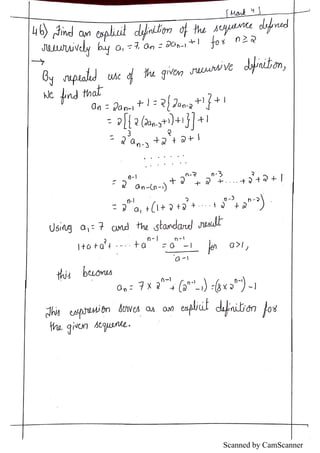 [Mark 4]
4b) Find an explicit definition of the sequence defined
recursively by a₁ = 7, aₙ = 2aₙ₋₁ + 1 for n ≥ 2
→
By repeated use of the given recursive definition,
we find that
aₙ = 2aₙ₋₁ + 1 = 2{2aₙ₋₂ + 1} + 1
= 2[{2(2aₙ₋₃+1)+1}] + 1
= 2³aₙ₋₃ + 2² + 2 + 1
. . . . . . .
. . . . . . .
= 2ⁿ⁻¹ aₙ₋₍ₙ₋₁₎ + 2ⁿ⁻² + 2ⁿ⁻³ + .... + 2² + 2 + 1
= 2ⁿ⁻¹ a₁ + (1 + 2 + 2² + .... + 2ⁿ⁻³ + 2ⁿ⁻²)
Using a₁ = 7 and the standard result
1+a+a²+ ---- +aⁿ⁻¹ = aⁿ⁻¹ - 1 / a-1 for a>1,
this becomes
aₙ = 7 × 2ⁿ⁻¹ + (2ⁿ⁻¹ - 1) = (8 × 2ⁿ⁻¹) - 1
This expression serves as an explicit definition for
the given sequence.
Scanned by CamScanner